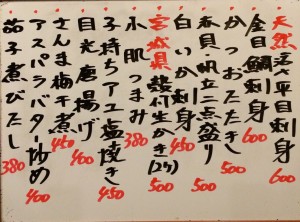 天然活〆平目刺身 600
金目鯛刺身 600
かつおたたき 500
赤貝帆立二点盛り 500
白いか刺身 450
宮城県殻付生かき(2ケ) 500
小肌つまみ 380
子持ちアユ塩焼き 450
目光唐揚げ 400
さんま梅干煮 450
アスパラバター炒め 400
茄子煮びたし 380